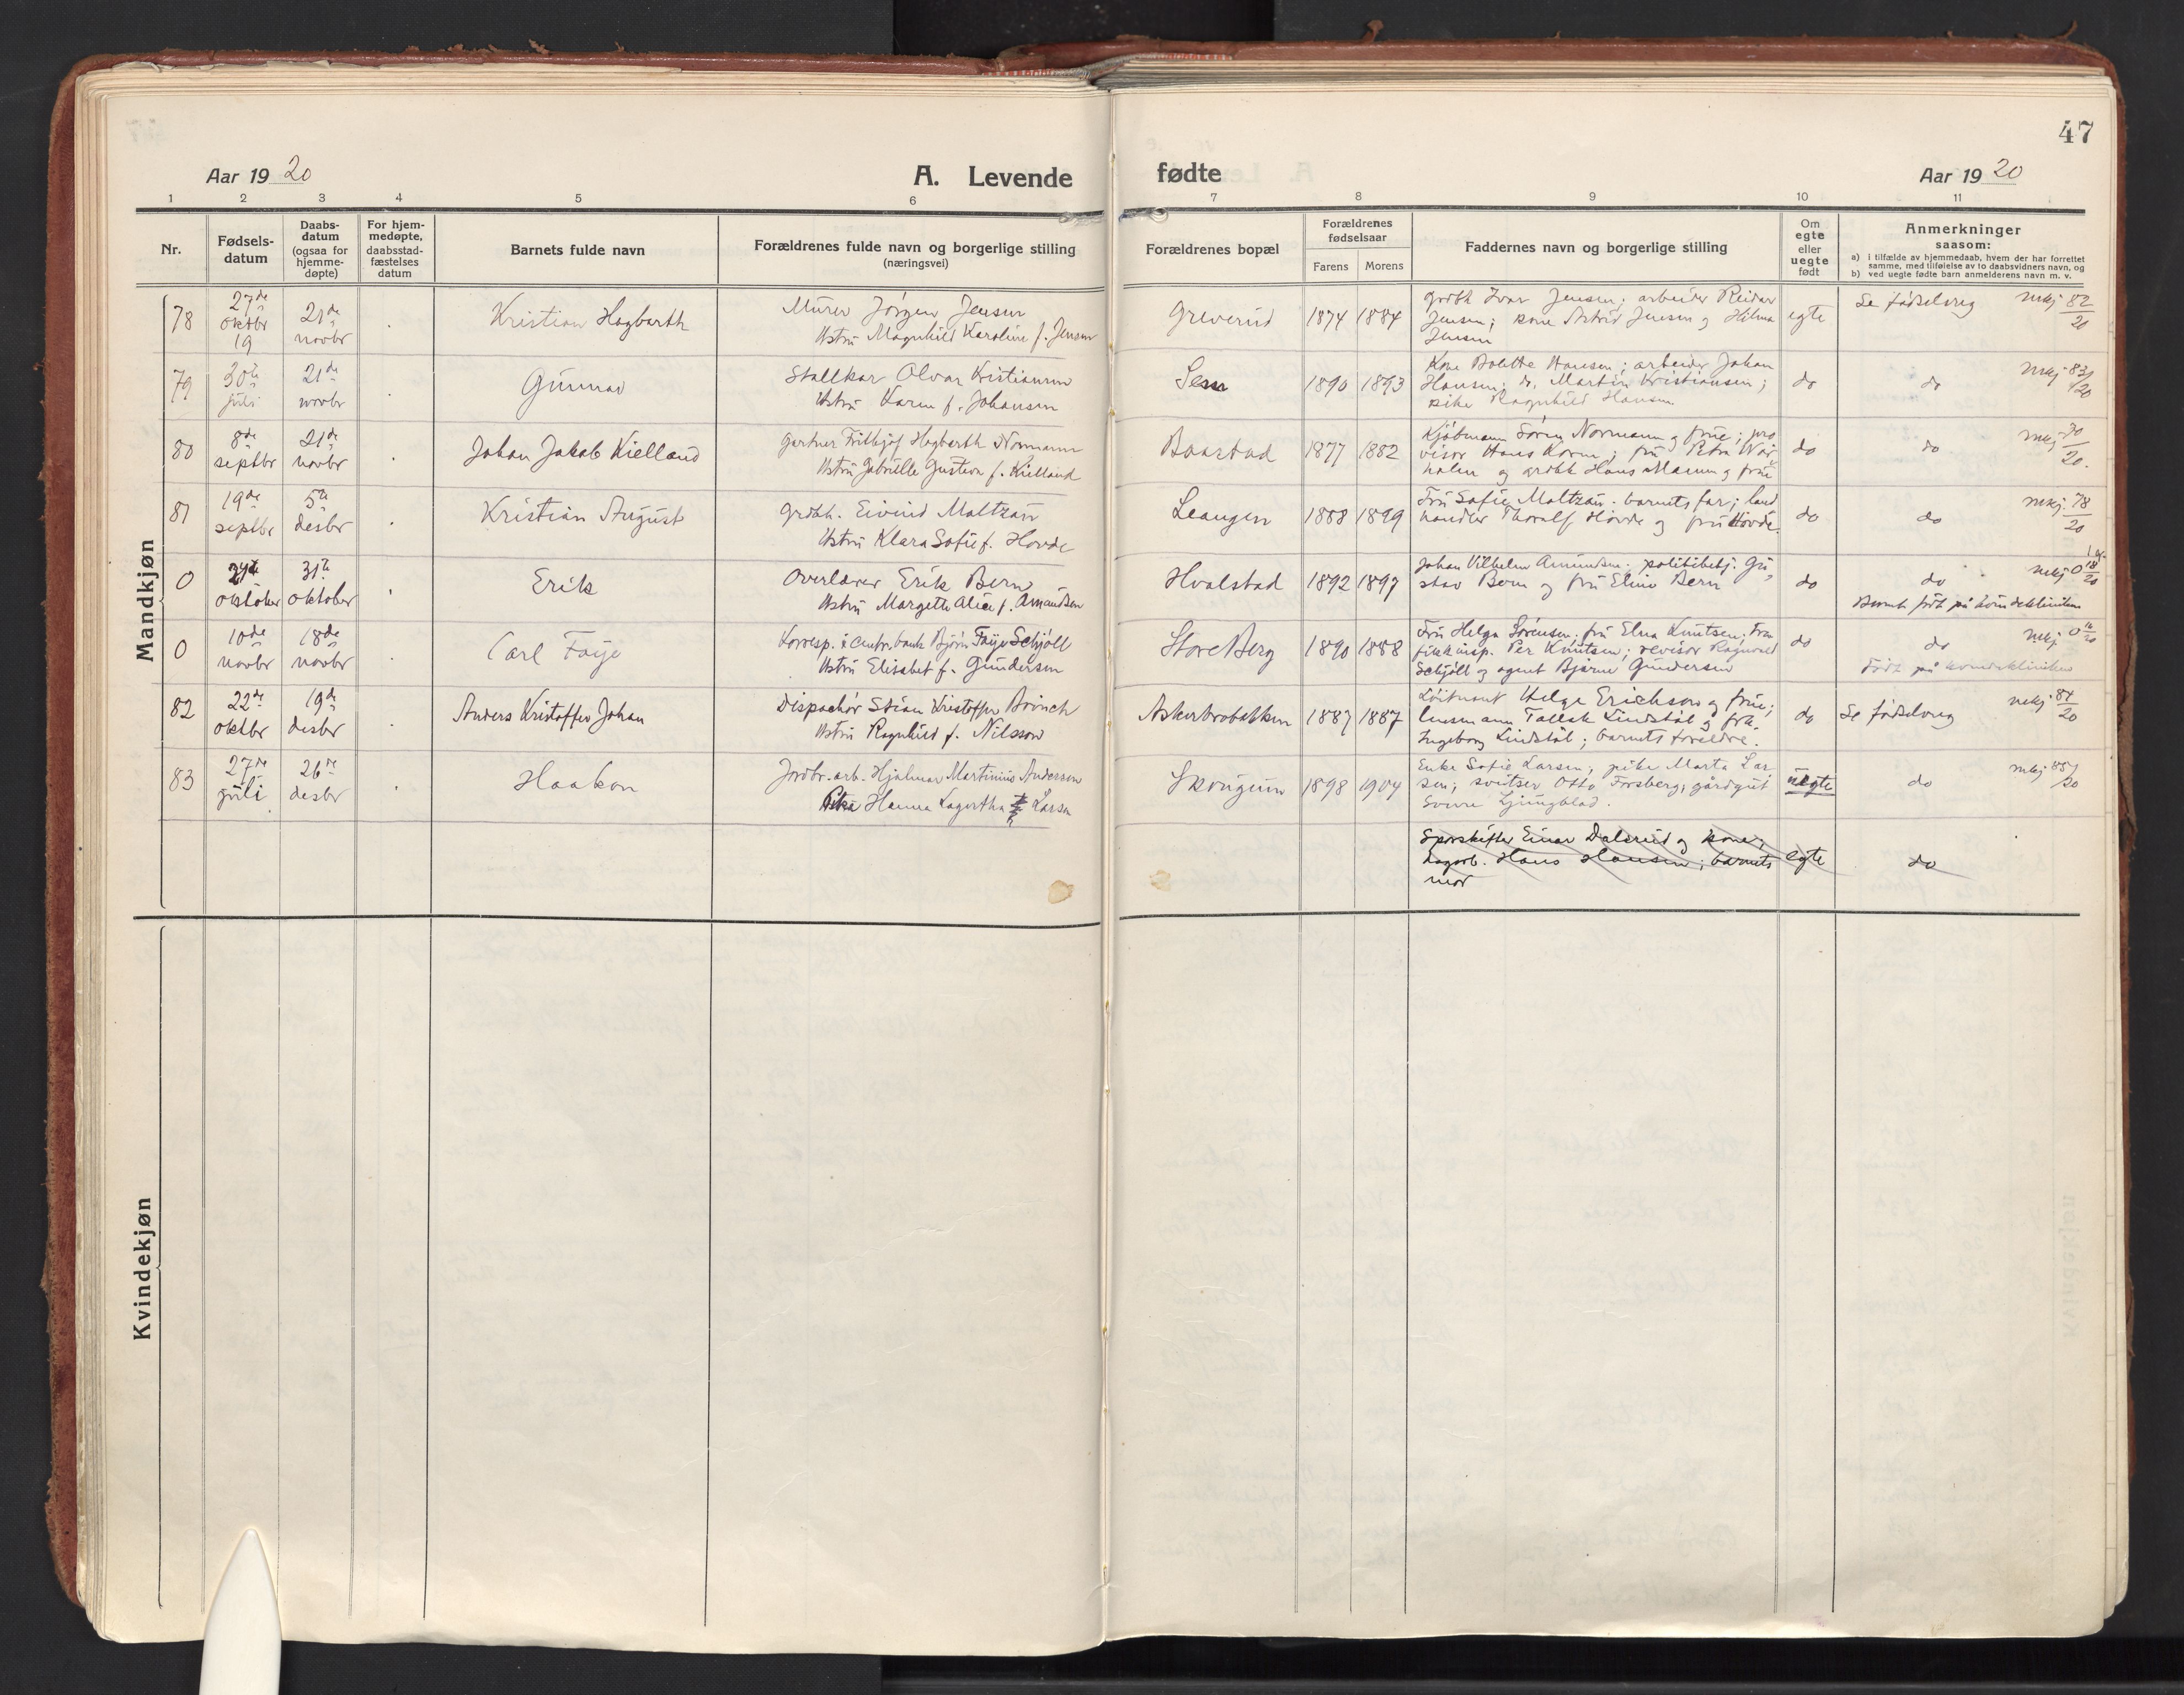 47
Aar 1920
A. Levende
fødte
Aar 1920
1 2 3 4 5 6 7 8 9 10 11
Nr.
Fødsels-
datum
Daabs-
datum
(ogsaa for
hjemme-
døpte)
For hjem-
medøpte,
daabsstad-
fæstelses
datum
Barnets fulde navn
Forældrenes fulde navn og borgerlige stilling
(næringsvei)
Forældrenes bopæl
Forældrenes
fødselsaar
Farens Morens
Faddernes navn og borgerlige stilling
Om
egte
eller
uegte
født
Anmerkninger
saasom:
a) i tilfælde av hjemmedaab, hvem der har forrettet
samme, med tilføielse av to daabsvidners navn, og
b) ved uegte fødte barn anmelderens navn m. v.
Mandkjøn
78
27de
oktbr
19
21de
novbr
Kristian Hagbarth
Murer Jørgen Jensen
Hstru Magnhild Karoline f. Jensen
Greverud
1874 1884
grdbk Ivar Jensen; arbeider Reidar
Jensen; kone Astrid Jensen og Hilma
Jensen
egte
Se fødselsreg
mkj 82/20
79
30te
juli
21de
novbr
Gunnar
Stallkar Olvar Kristiansen
Hstru Karen f. Johansen
Sem
1890 1893
Kone Bolette Hansen; arbeider Johan
Hansen; do. Martin Kristiansen;
pike Ragnhild Hansen
do
do
mkj 83/20
80
8de
septbr
21de
novbr
Johan Jakob Kielland
Gartner Frithjof Hagbarth Normann
Hstru Gabrielle Gustava f. Kielland
Baastad
1877 1882
Kjøbmann Søren Normann og frue; pro
visor Hans Koren; fru Petra War
holm og grdbk Hans Mamen og frue
do
do
mkj 70/20.
81
19de
septbr
5te
desbr
Kristian August
grdbk. Eivind Maltzau
Hstru Klara Sofie f. Hovde
Leangen
1888 1899
Fru Sofie Maltzau; barnets far; land
handler Thoralf Hovde og fru Hovde
do
do
mkj. 78/20
0
oktober
31te
oktober
Erik
Overlærer Erik Bern
Hstru Margethe Alice f. Amundsen
Hvalstad
1892 1897
Johan Vilhelm Amundsen; politibetj. Gu
stav Bern og fru Eline Bern
do
do
mkj 0 18/20
Barnet født på kvindeklinikken
0
10de
novbr
18de
novbr
Carl Faye
Korresp. i Centr.bank Bjørn Faye Schjøll
Hstru Elisabet f. Gundersen
Store Berg
1890 1888
Fru Helga Sørensen; fru Elna Knutsen; tra
fikkinsp. Per Knutsen; revisor Ragnvald
Schjøll og agent Bjarne Gundersen
do
do
mkj 0
Født på kvindeklinikken
82
22de
oktbr
19de
desbr
Anders Kristoffer Johan
Dispachør Stian Kristoffer Brinch
Hstru Ragnhild f. Nilsson
Askerbrobakken
1887 1887
Løitnant Helge Erichson og frue;
lensmann Tallak Lindstøl og frk.
Ingeborg Lindstøl; barnets foreldre.
do
Se fødselsreg
mkj 84/20
83
27de
juli
26de
desbr
Haakon
Jordbr. arb. Hjalmar Martinius Anderssen
Pike Hanna Lagertha Larsen
Skougum
1898 1904
Enke Sofie Larsen; pike Marta Lar
sen; sveitser Otto Forsberg; gårdgut
Sverre Ljungblad.
uegte
do
mkj 85/20
Sporskifter Einar Dalerud og kone;
dagarb. Hans Hansen; barnets
mor
egte
do
Kvindekjøn